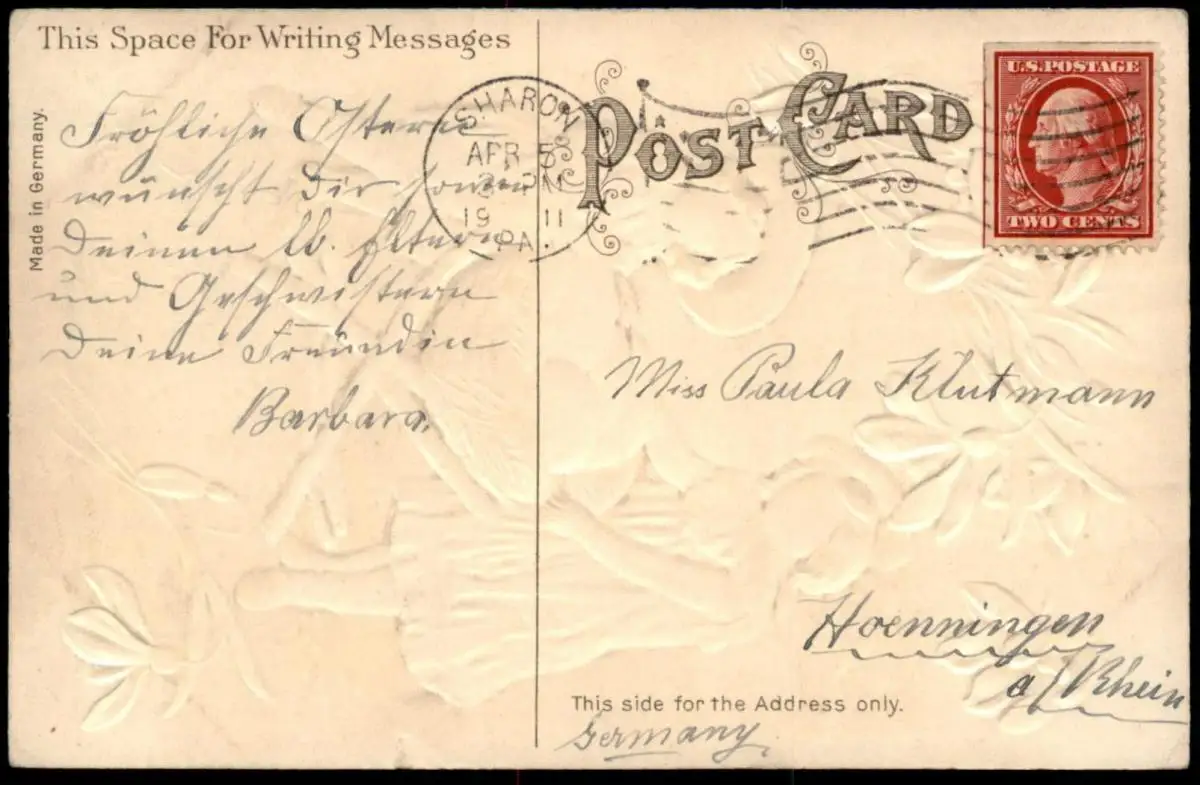 This Space For Writing Messages
Made in Germany.
Fröhliche Ostern
wünscht Dir sowie
Deinen lb. Eltern
und Geschwistern
Deine Freundin
Barbara.
POST CARD
SHARON
APR 5
PM
19 11
PA.
U.S. POSTAGE
TWO CENTS
Miss Paula Klutmann
Hoenningen
a/ Rhein
This side for the Address only.
Germany.